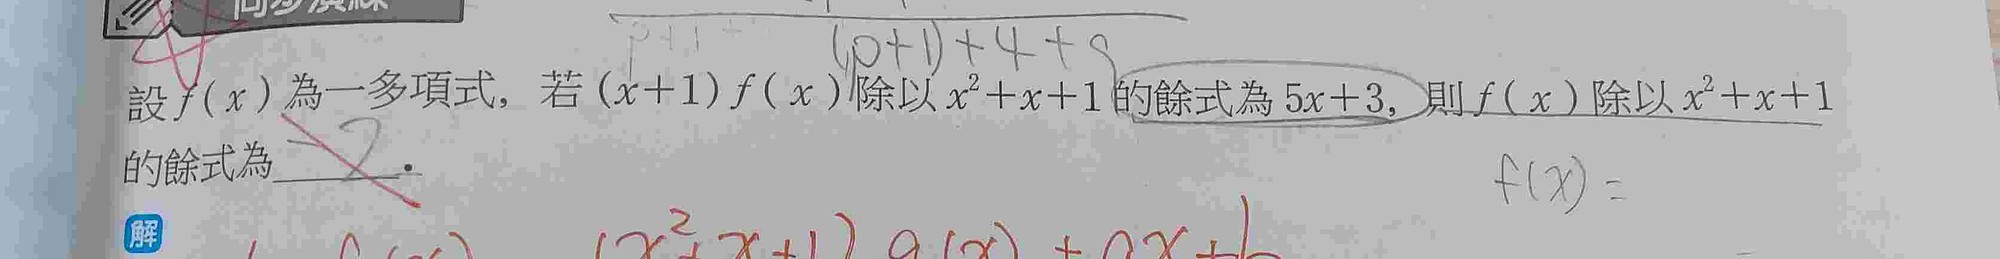 同步演練
(p+1)+4+9
設 f(x) 為一多項式，若 (x+1) f(x) 除以 x²+x+1 的餘式為 5x+3，則 f(x) 除以 x²+x+1
的餘式為 -2 .
f(x) =
解
f(x) (x²+x+1) q(x) + ax+b